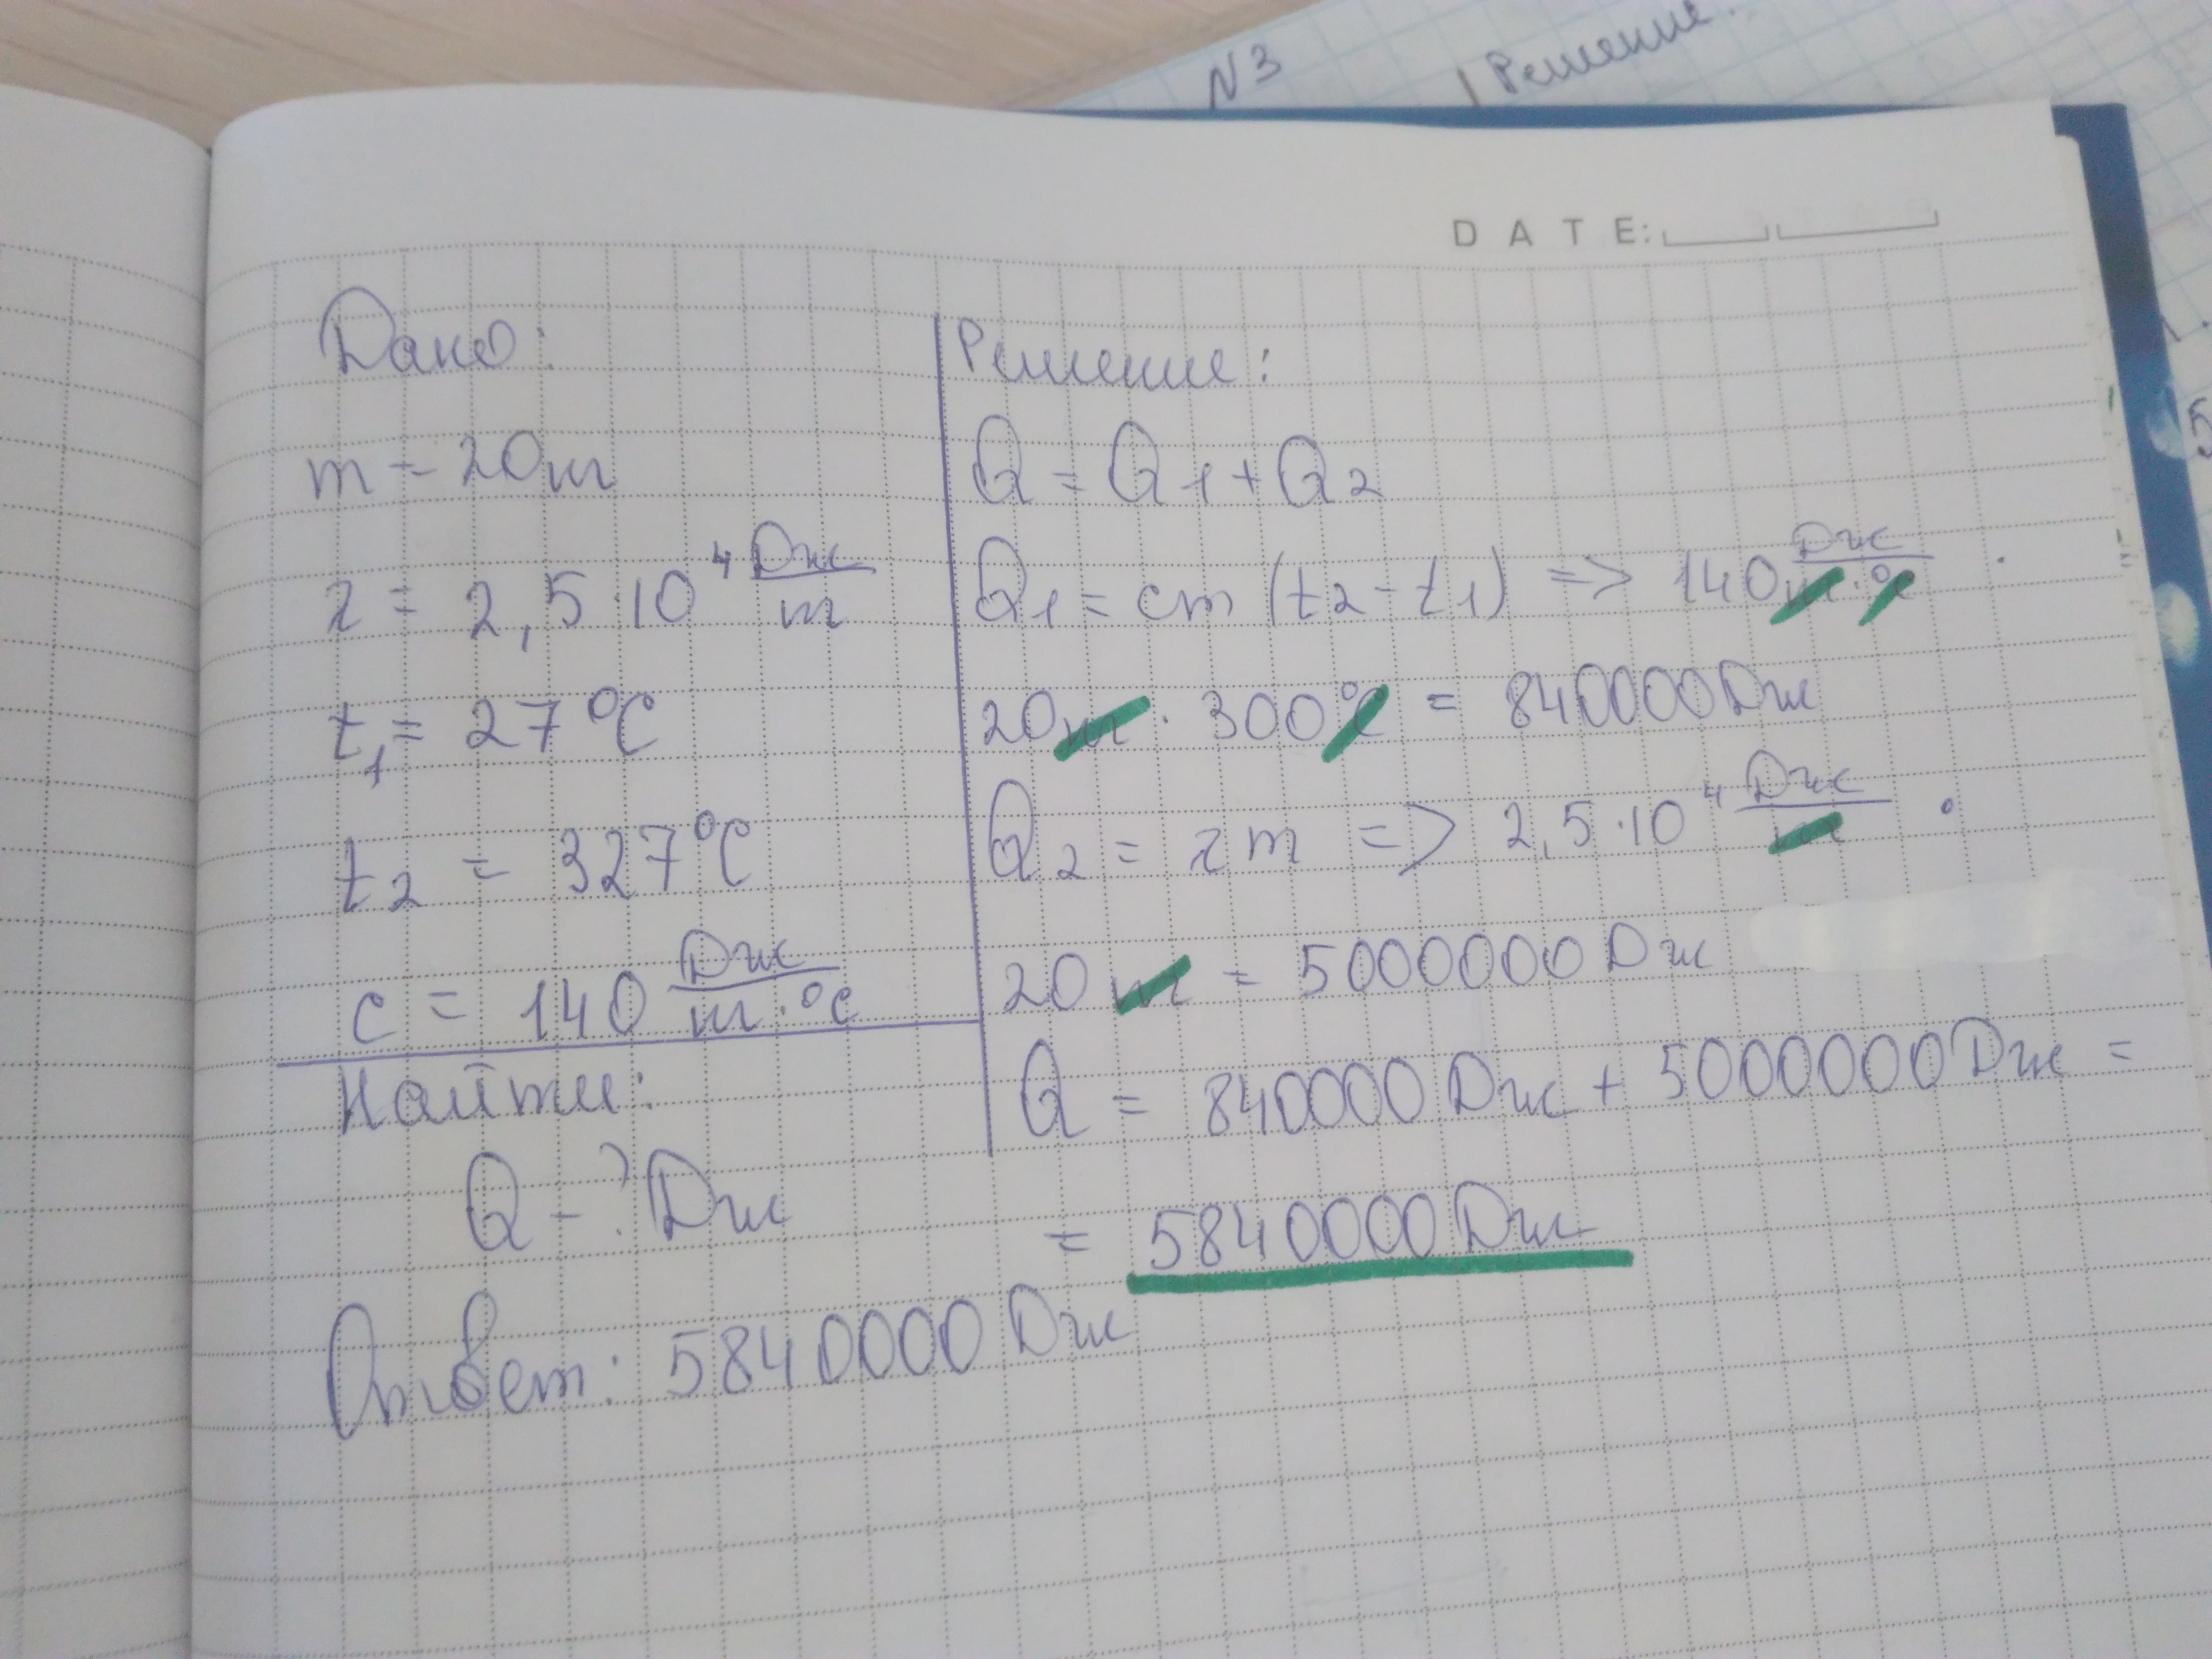 N3
Решение.
DATE:
Дано:
m = 20кг
λ = 2,5·10⁴ Дж/кг
t₁ = 27°C
t₂ = 327°C
c = 140 Дж/кг·°C
Найти:
Q - ? Дж
Решение:
Q = Q₁ + Q₂
Q₁ = cm (t₂ - t₁) => 140 Дж/кг·°C ·
20кг · 300°C = 840000 Дж
Q₂ = λm => 2,5·10⁴ Дж/кг ·
20 кг = 5000000 Дж
Q = 840000 Дж + 5000000 Дж =
= 5840000 Дж
Ответ: 5840000 Дж
5